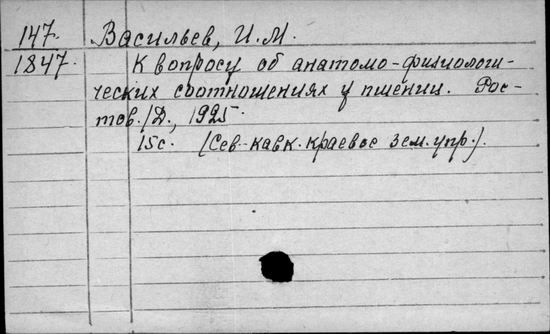 147. Васильев, И.М.
1847. К вопросу об анатомо-физиологи-
ческих соотношениях у пшениц. Рос-
тов./Д., 1925.
15с. (Сев.-кавк. краевое зем. упр.).